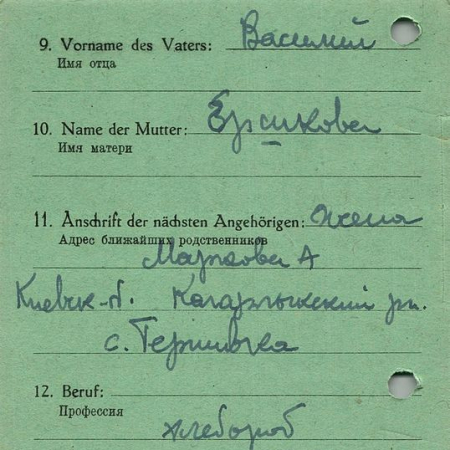 9. Vorname des Vaters: Василий
Имя отца
10. Name der Mutter: Ершикова
Имя матери
11. Anschrift der nächsten Angehörigen: жена
Адрес ближайших родственников
Маркова А
Киевск-о. Кагарлыкский рн.
с.
12. Beruf:
Профессия
хлебороб